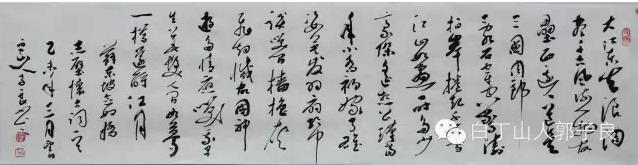 大江东去浪淘
尽千古风流人物故
垒西边人道是
三国周郎
赤壁乱石穿空惊涛
拍岸捲起千堆雪
江山如画一时多少
豪杰遥想公瑾当
年小乔初嫁了雄
姿英发羽扇纶巾
谈笑间樯橹灰
飞烟灭故国神
游多情应笑我早
生华发人间如梦
一樽还酹江月
苏东坡念奴娇
赤壁怀古词一首
乙未年十二月
白丁山人郭学良